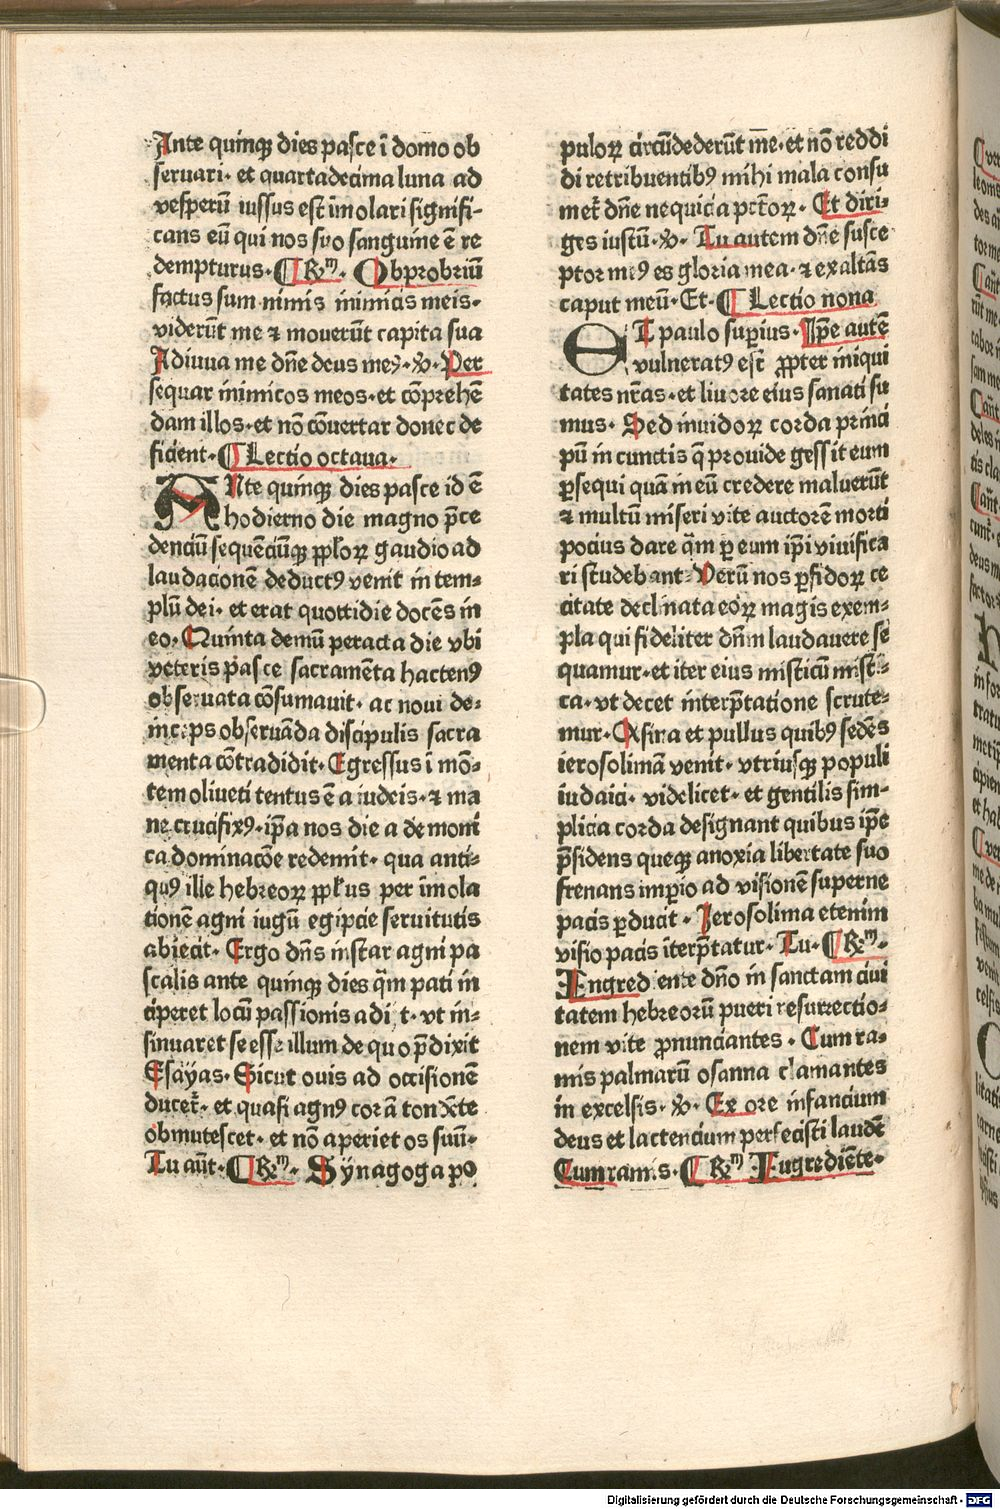 Ante quinqꝫ dies pasce ī domo ob
seruari· et quartadecima luna ad
vesperū iussus est īmolari signifi-
cans eū qui nos suo sanguine ē re
dempturus· ¶ Rm̄· Obprobriū
factus sum nimis inimicis meis·
viderūt me ⁊ mouerūt capita sua
Adiuua me dn̄e deus meꝰ· ℣· Per
sequar inimicos meos· et cōprehē
dam illos· et nō cōuertar donec de
ficient· ¶ Lectio octaua·
ANte quinqꝫ dies pasce id ē
hodierno die magno p̄ce
denciū sequēciūqꝫ pp̄loꝝ gaudio ad
laudacionē deductꝰ venit in tem-
plū dei· et erat quottidie docēs in
eo· Quinta demū peracta die vbi
veteris pasce sacramēta hactenꝰ
obseruata cōsumauit· ac noui de-
inceps obseruāda discipulis sacra
menta cōtradidit· Egressus ī mō-
tem oliueti tentus ē a iudeis· ⁊ ma
ne crucifixꝰ· ip̄a nos die a demoni
ca dominacōe redemit· qua anti-
quꝰ ille hebreoꝝ pp̄lus per īmola
tionē agni iugū egipcie seruitutis
abiecit· Ergo dn̄s instar agni pa
scalis ante quinqꝫ dies q̄m pati in
ciperet locū passionis adijt· vt in-
sinuaret se esse illum de quo p̄dixit
Esayas· Sicut ouis ad occisionē
ducet̄· et quasi agnꝰ corā tondēte
obmutescet· et nō aperiet os suū·
Tu aūt· ¶ Rm̄· Synagoga po
puloꝝ circūdederūt me· et nō reddi
di retribuentibꝰ mihi mala consu
met̄ dn̄e nequicia pctōꝝ· Et diri-
ges iustū· ℣· Tu autem dn̄e susce
ptor meꝰ es gloria mea· ⁊ exaltās
caput meū· Et· ¶ Lectio nona
ET paulo suꝑius· Ip̄e autē
vulneratꝰ est ꝓpter iniqui
tates nr̄as· et liuore eius sanati su
mus· Sed inuidoꝝ corda princi
pū in cunctis q̄ prouide gessit eum
ꝑsequi quā in eū credere maluerūt
⁊ multū miseri vite auctorē morti
pocius dare q̄m ꝑ eum ip̄i viuifica
ri studebant· Verū nos ꝑfidoꝝ ce
citate declinata eoꝝ magis exem-
pla qui fideliter dn̄m laudauere se
quamur· et iter eius misticū misti-
ca· vt decet interp̄tatione scrute-
mur· Asina et pullus quibꝰ sedēs
ierosolimā venit· vtriusqꝫ populi
iudaici· videlicet· et gentilis sim-
plicia corda designant quibus ip̄e
p̄sidens queqꝫ anoxia libertate suo
frenans imꝑio ad visionē superne
pacis ꝑducit· Ierosolima etenim
visio pacis īterp̄tatur· Tu· ¶ Rm̄·
Ingrediente dn̄o in sanctam ciui
tatem hebreorū pueri resurrectio-
nem vite ꝓnunciantes· Cum ra-
mis palmarū osanna clamantes
in excelsis· ℣· Ex ore infancium
deus et lactencium perfecisti laudē
Cum ramis· ¶ Rm̄ Iugrediēte·
Digitalisierung gefördert durch die Deutsche Forschungsgemeinschaft - DFG